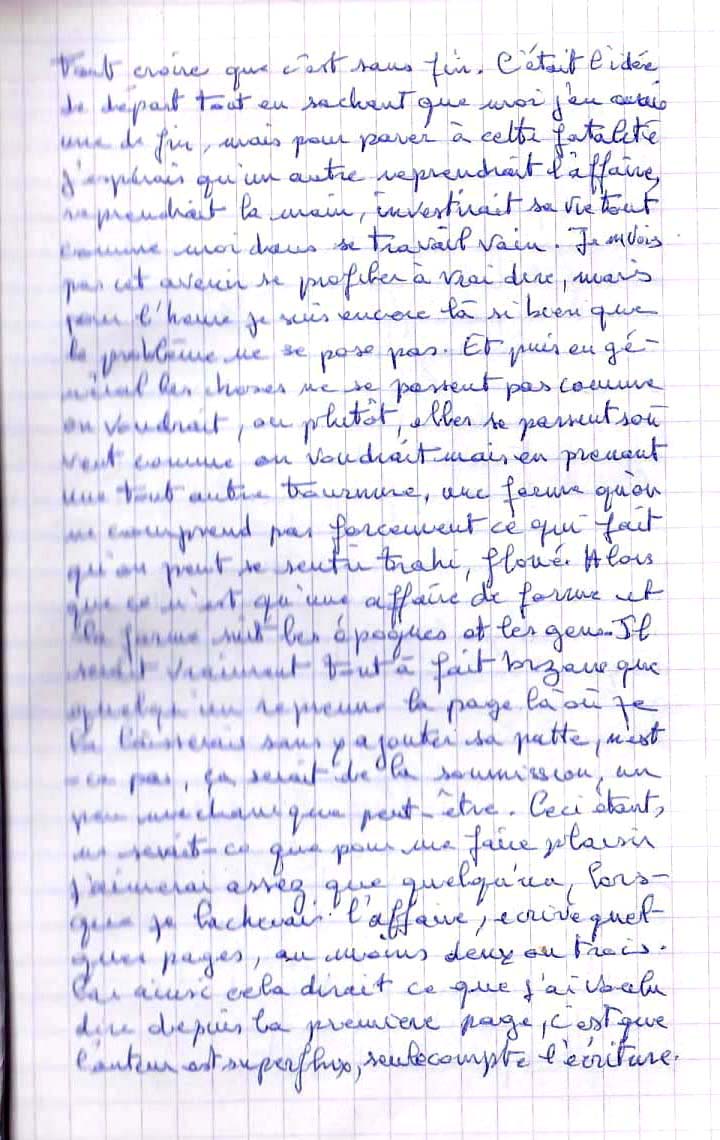 croire que c'est sans fin. C'était l'idée
de départ tout en sachant que moi j'en aurai
une de fin, mais pour parer à cette fatalité
j'espérais qu'un autre reprendrait l'affaire,
reprendrait la main, investirait sa vie tout
comme moi dans se travail vain. Je ne vois
pas cet avenir se profiler à vrai dire, mais
pour l'heure je suis encore là si bien que
le problème ne se pose pas. Et puis en gé-
néral les choses ne se passent pas comme
on voudrait, ou plutôt, elles se passent sou
vent comme on voudrait mais en prenant
une tout autre tournure, une forme qu'on
ne comprend pas forcément ce qui fait
qu'on peut se sentir trahi, floué. Alors
que ce n'est qu'une affaire de forme et
la forme suit les époques et les gens. Il
serait vraiment tout à fait bizare que
quelqu'un reprenne la page là où je
la laisserais sans y ajouter sa patte, n'est
-ce pas, ça serait de la soumission, un
peu mechanique peut-être. Ceci étant,
ne serait-ce que pour me faire plaisir
j'aimerai assez que quelqu'un, lors-
que je lacherais l'affaire, ecrive quel-
ques pages, au moins deux ou trois.
Car ainsi cela dirait ce que j'ai voulu
dire depuis la première page, c'est que
l'auteur est superflux, seule compte l'écriture.